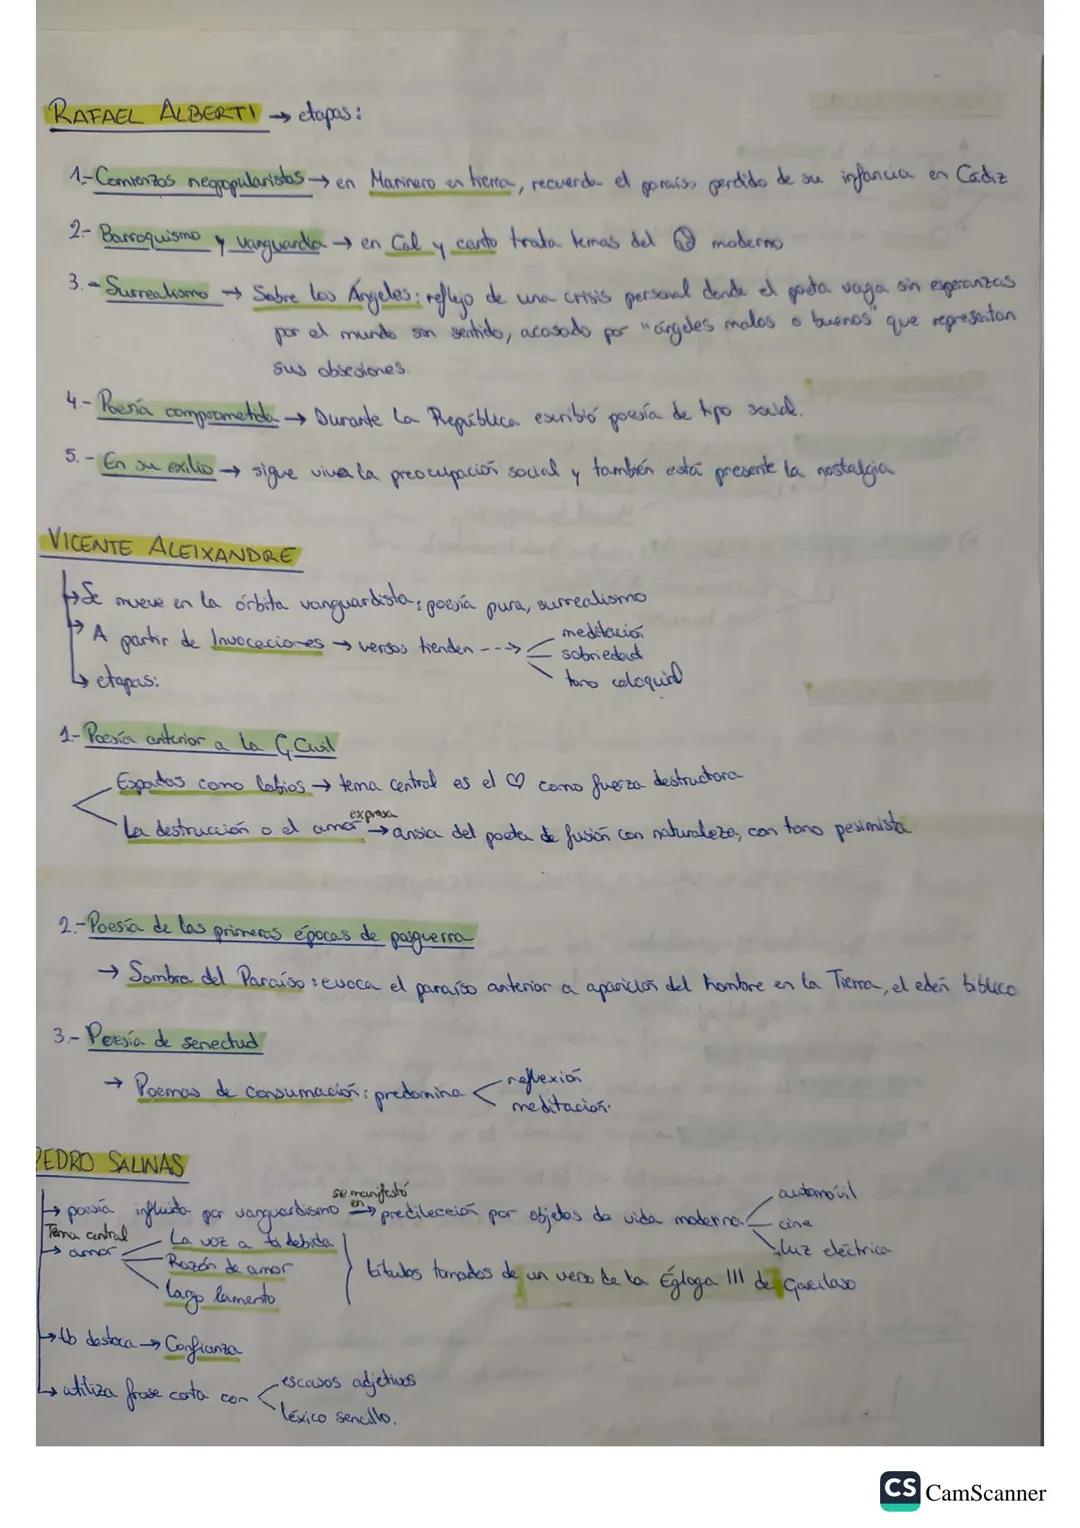 RAFAEL ALBERTI → etapas:
1.- Comienzos neopopularistas → en Marinero en tierra, recuerda el paraíso perdido de su infancia en Cádiz
2.- Barroquismo y vanguardia → en Cal y canto trata temas del moderno
3.- Surrealismo → Sobre los Ángeles: reflejo de una crisis personal donde el poeta vaga sin esperanzas
por el mundo sin sentido, acosado por "ángeles malos o buenos" que representan
sus obsesiones.
4.- Poesía comprometida → Durante la República escribió poesía de tipo social.
5.- En su exilio → sigue viva la preocupación social y también está presente la nostalgia
VICENTE ALEIXANDRE
→ Se mueve en la órbita vanguardista: poesía pura, surrealismo
→ A partir de Invocaciones → versos tienden ---> meditación
sobriedad
tono coloquial
→ etapas:
1.- Poesía anterior a la G. Civil
Espadas como labios → tema central es el ♡ como fuerza destructora
La destrucción o el amor expresa → ansia del poeta de fusión con naturaleza, con tono pesimista
2.- Poesía de las primeras épocas de posguerra
→ Sombra del Paraíso: evoca el paraíso anterior a aparición del hombre en la Tierra, el edén bíblico
3.- Poesía de senectud
→ Poemas de consumación: predomina reflexión
meditación.
PEDRO SALINAS
→ poesía influida por vanguardismo se manifestó en → predilección por objetos de vida moderna automóvil
cine
luz eléctrica
Tema central
→ amor La voz a ti debida
Razón de amor
Largo lamento
títulos tomados de un verso de la Égloga III de Garcilaso
→ tb destaca → Confianza
→ utiliza frase corta con escasos adjetivos
léxico sencillo.
CS CamScanner